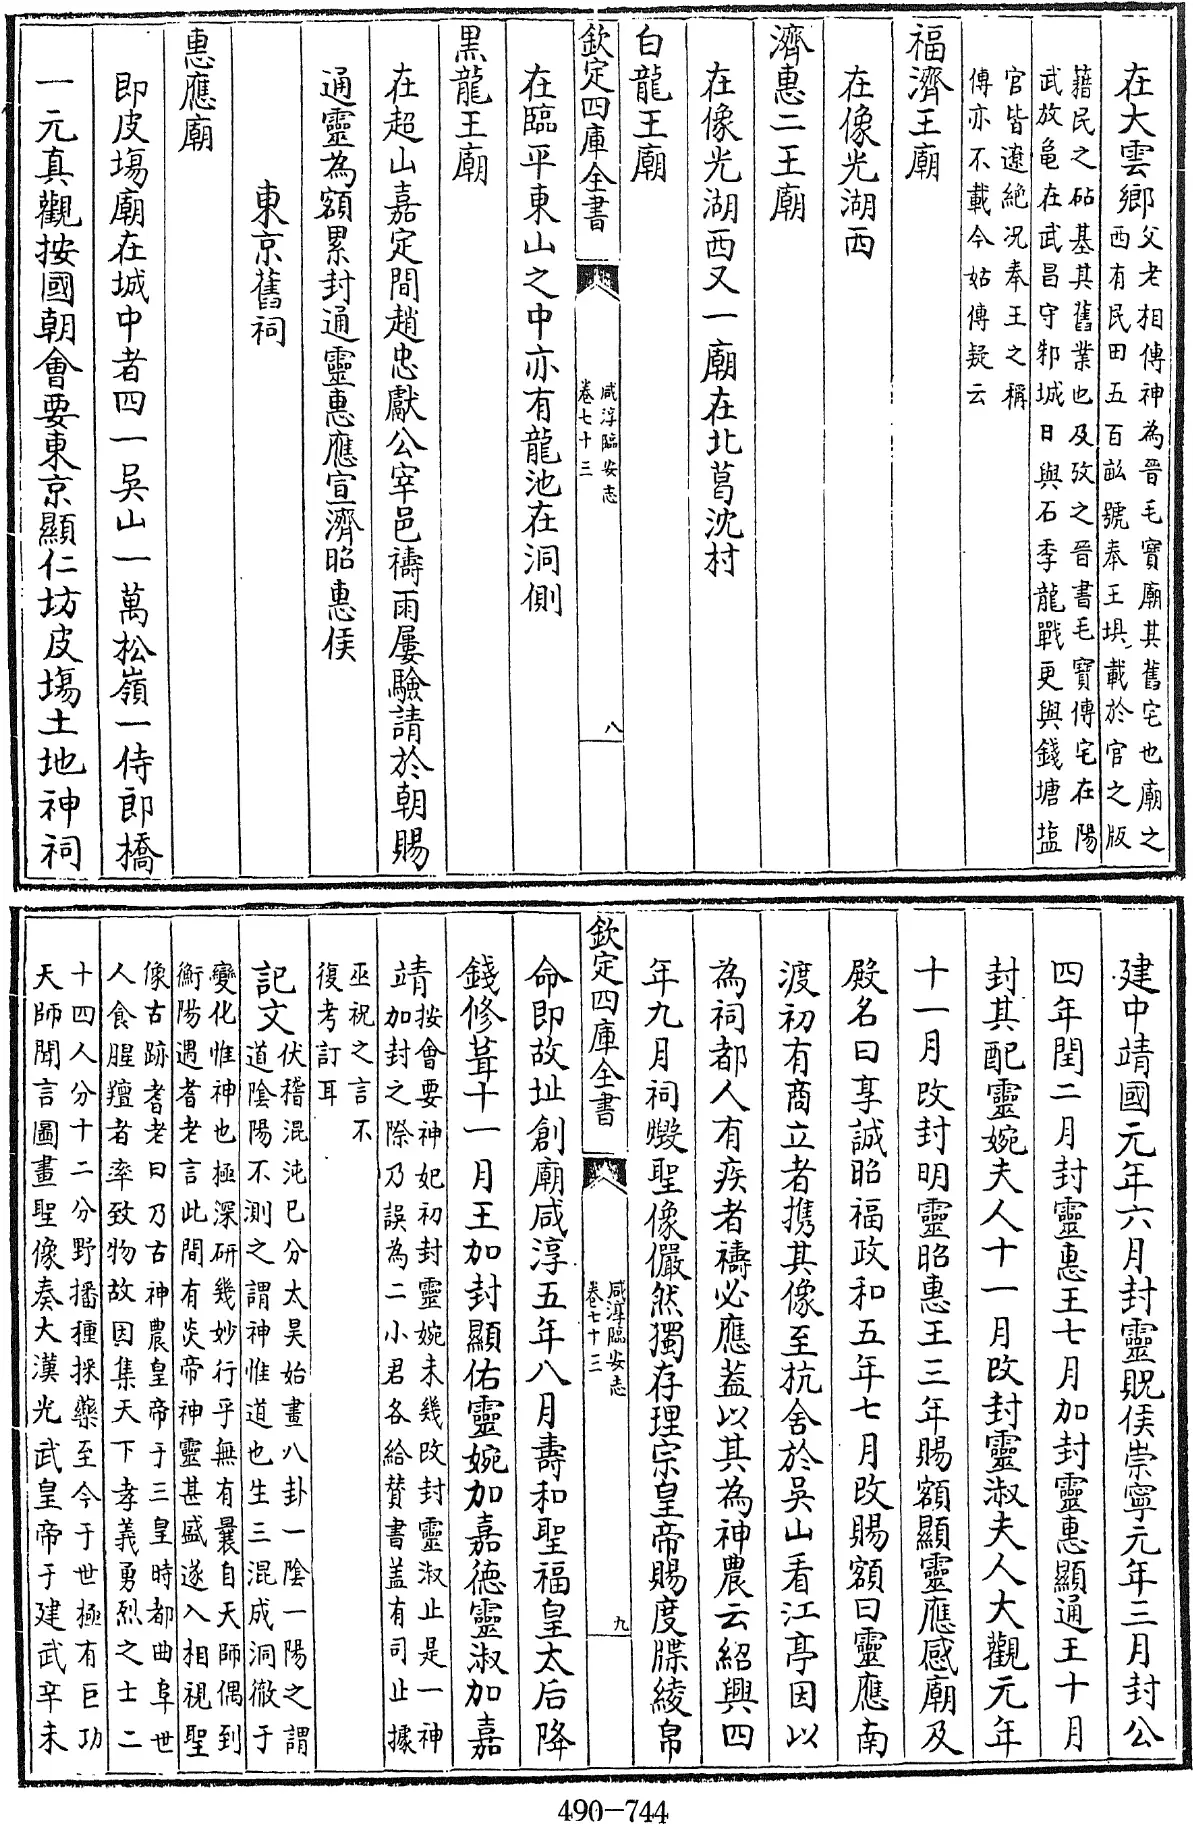 在大雲鄉父老相傳神為晉毛寶廟其舊宅也廟之
西有民田五百畝號奉王埧載於官之版
藉民之砧基其舊業也及攷之晉書毛寶傳宅在陽
武放龜在武昌守邾城日與石季龍戰更與錢塘塩
官皆遼絶况奉王之稱
傳亦不載今姑傳疑云
福濟王廟
在像光湖西
濟惠二王廟
在像光湖西又一廟在北葛沈村
白龍王廟
欽定四庫全書
咸淳臨安志
卷七十三
八
在臨平東山之中亦有龍池在洞側
黒龍王廟
在超山嘉定間趙忠獻公宰邑禱雨屢驗請於朝賜
通靈為額累封通靈惠應宣濟昭惠侯
東京舊祠
惠應廟
即皮塲廟在城中者四一吳山一萬松嶺一侍郎橋
一元真觀按國朝會要東京顯仁坊皮塲土地神祠
建中靖國元年六月封靈貺侯崇寧元年三月封公
四年閏二月封靈惠王七月加封靈惠顯通王十月
封其配靈婉夫人十一月改封靈淑夫人大觀元年
十一月改封明靈昭惠王三年賜額顯靈應感廟及
殿名曰享誠昭福政和五年七月改賜額曰靈應南
渡初有商立者携其像至抗舍於吳山看江亭因以
為祠都人有疾者禱必應蓋以其為神農云紹興四
年九月祠燬聖像儼然獨存理宗皇帝賜度牒綾帛
欽定四庫全書
咸淳臨安志
卷七十三
九
命即故址創廟咸淳五年八月壽和聖福皇太后降
錢修葺十一月王加封顯佑靈婉加嘉德靈淑加嘉
靖按會要神妃初封靈婉未幾改封靈淑止是一神
加封之際乃誤為二小君各給賛書盖有司止據
巫祝之言不
復考訂耳
記文伏稽混沌已分太昊始畫八卦一陰一陽之謂
道陰陽不測之謂神惟道也生三混成洞徹于
變化惟神也極深研幾妙行乎無有曩自天師偶到
衡陽遇耆老言此間有炎帝神靈甚盛遂入相視聖
像古跡耆老曰乃古神農皇帝于三皇時都曲阜世
人食腥羶者率致物故因集天下孝義勇烈之士二
十四人分十二分野播種採藥至今于世極有巨功
天師聞言圖畫聖像奏大漢光武皇帝于建武辛未
490-744